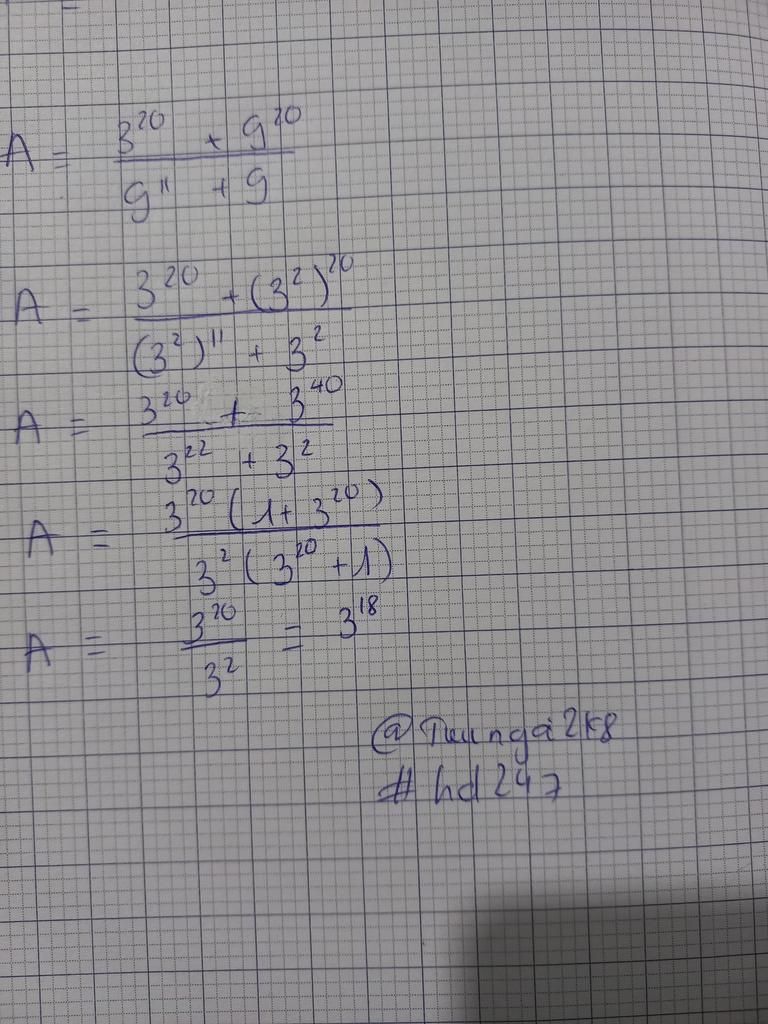 A = (3²⁰ + 9²⁰) / (9¹¹ + 9)
A = (3²⁰ + (3²)²⁰) / ((3²)¹¹ + 3²)
A = (3²⁰ + 3⁴⁰) / (3²² + 3²)
A = (3²⁰ (1 + 3²⁰)) / (3² (3²⁰ + 1))
A = 3²⁰ / 3² = 3¹⁸
# hd247